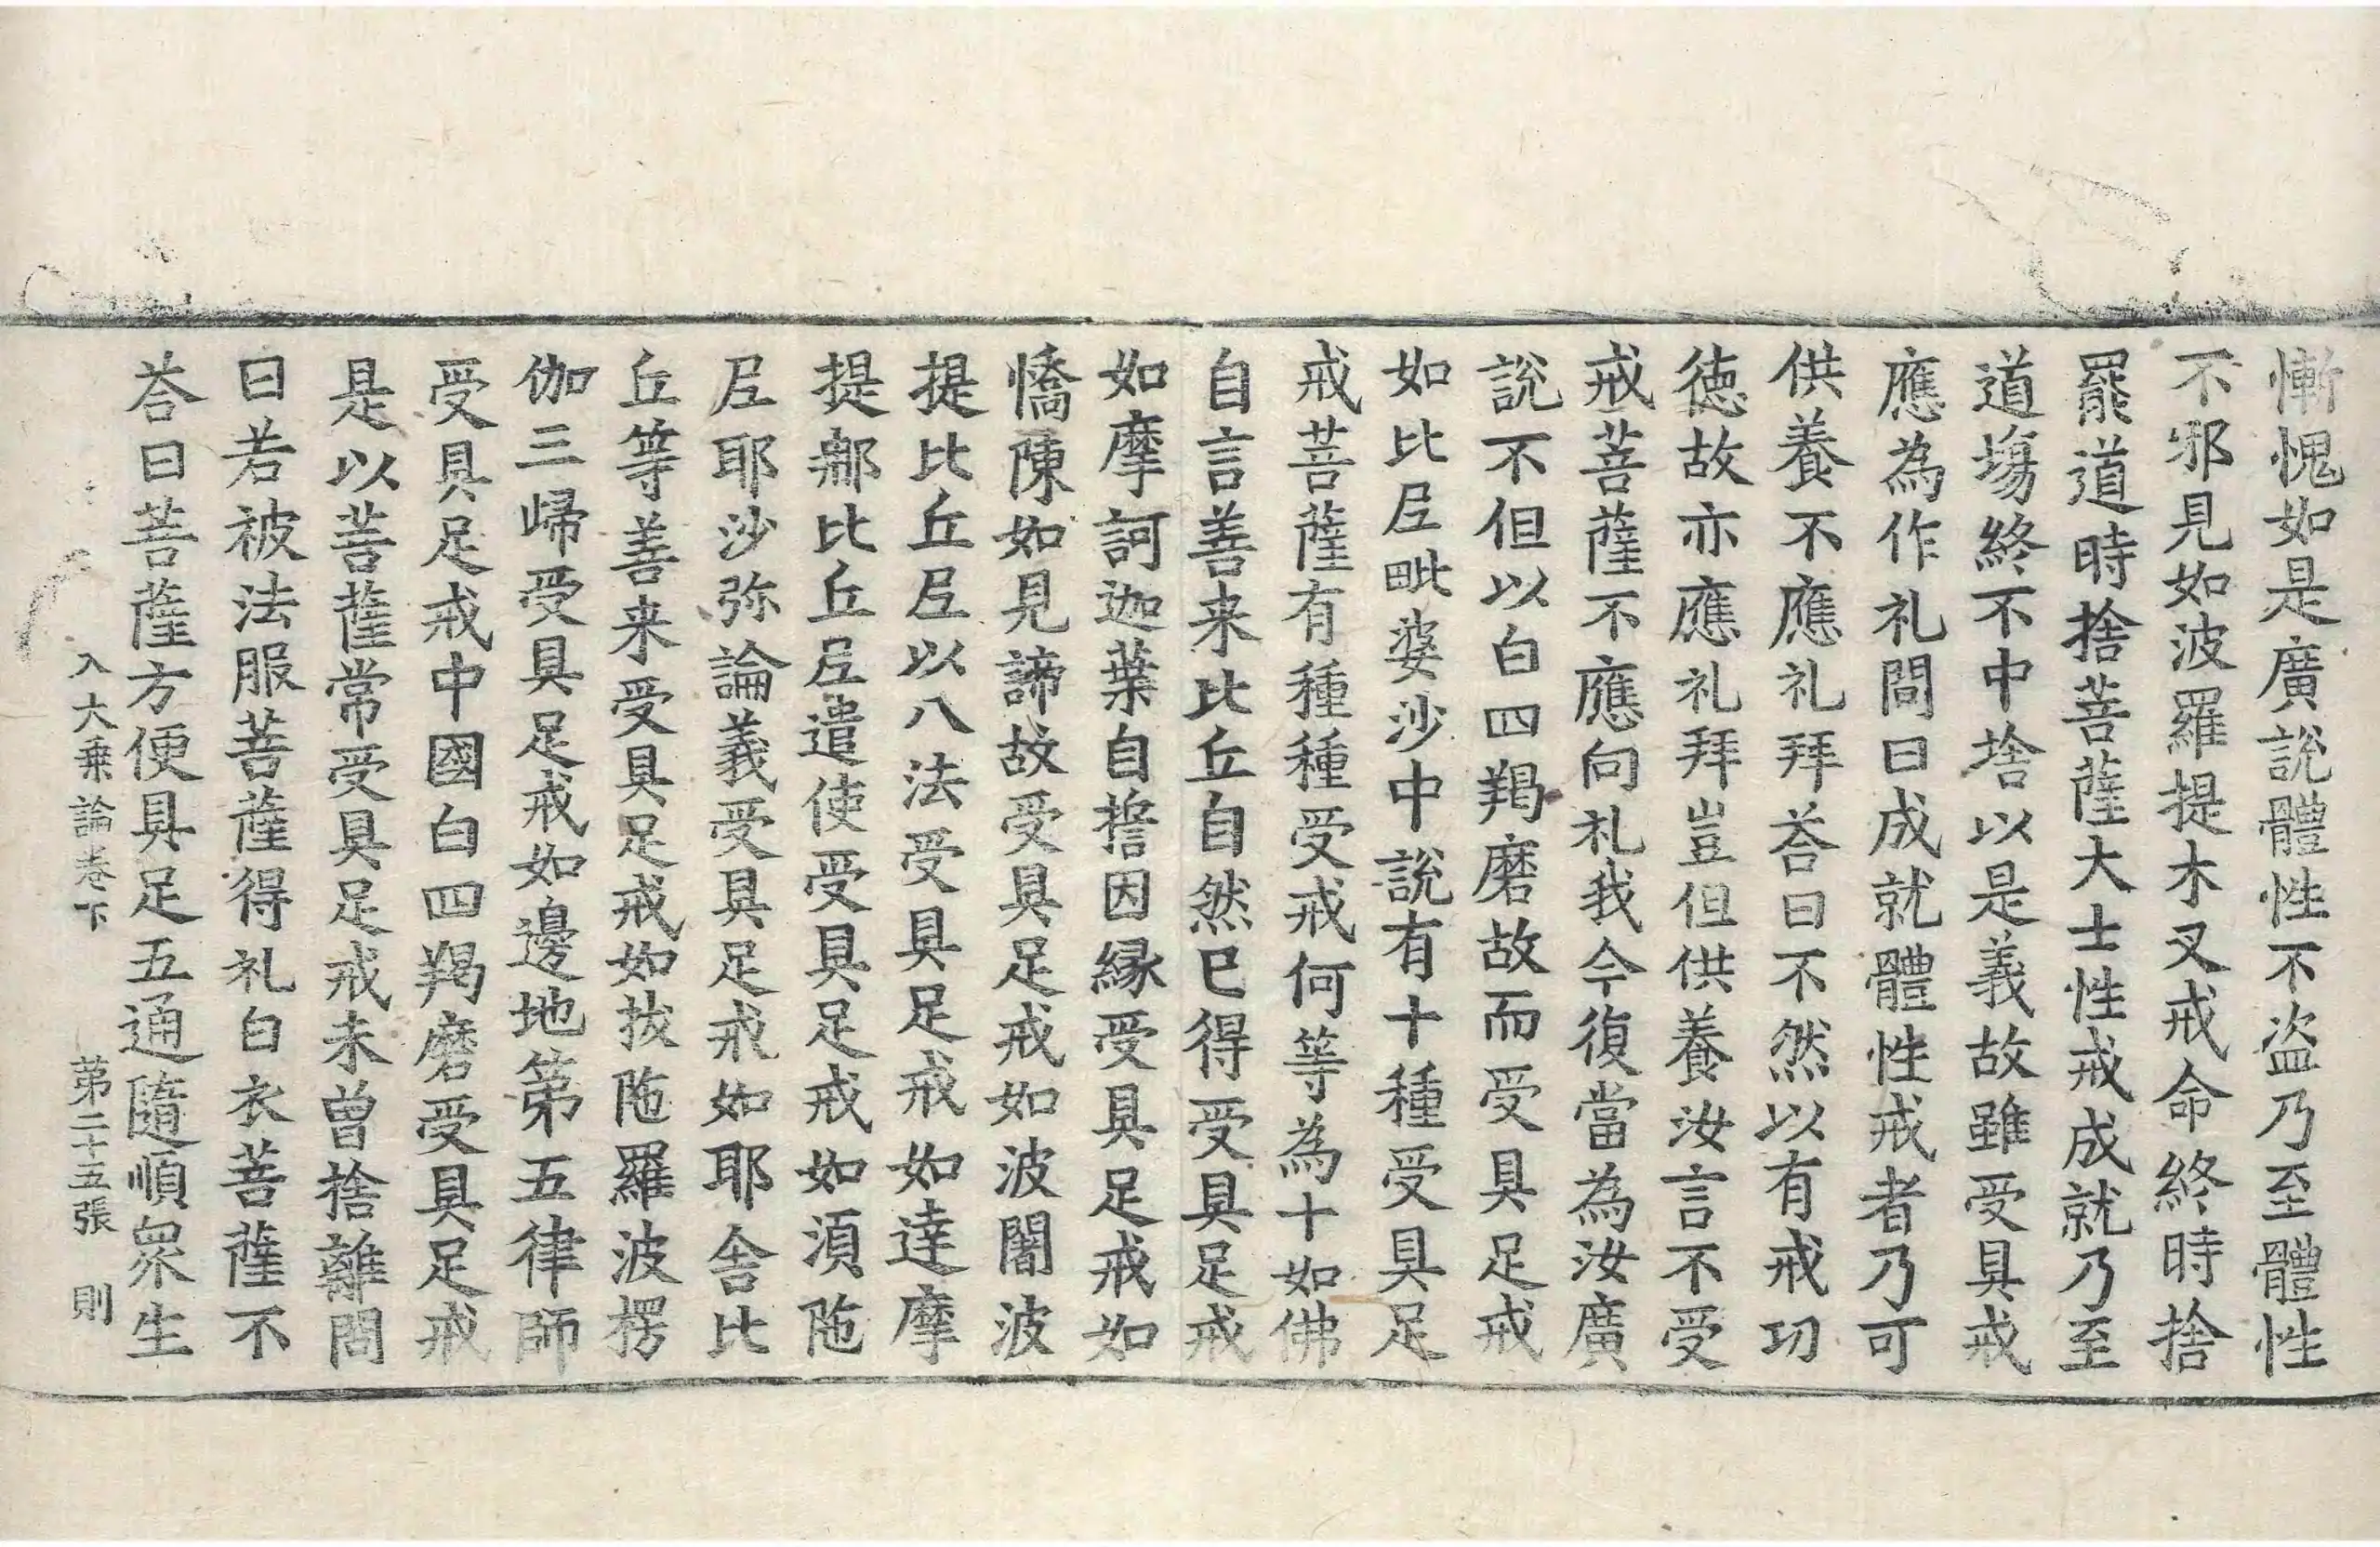 慚愧如是廣說體性不盗乃至體性
不邪見如波羅提木叉戒命終時捨
罷道時捨菩薩大士性戒成就乃至
道塲終不中捨以是義故雖受具戒
應為作礼問曰成就體性戒者乃可
供養不應礼拜荅曰不然以有戒㓛
徳故亦應礼拜豈但供養汝言不受
戒菩薩不應向礼我今復當為汝廣
說不但以白四羯磨故而受具足戒
如比𡰱毗婆沙中說有十種受具足
戒菩薩有種種受戒何等為十如佛
自言善来比丘自然已得受具足戒
如摩訶迦葉自擔因緣受具足戒如
憍陳如見諦故受具足戒如波闍波
提比丘𡰱以八法受具足戒如達摩
提鄉比丘𡰱遣使受具足戒如湏陁
𡰱耶沙弥論義受具足戒如耶舍比
丘等善来受具足戒如拔陁羅波楞
伽三歸受具足戒如邊地第五律師
受具足戒中國白四羯磨受具足戒
是以菩薩常受具足戒未曾捨離問
曰若被法服菩薩得礼白衣菩薩不
荅曰菩薩方便具足五通隨順眾生
入大乗論卷下 第二十五張 則